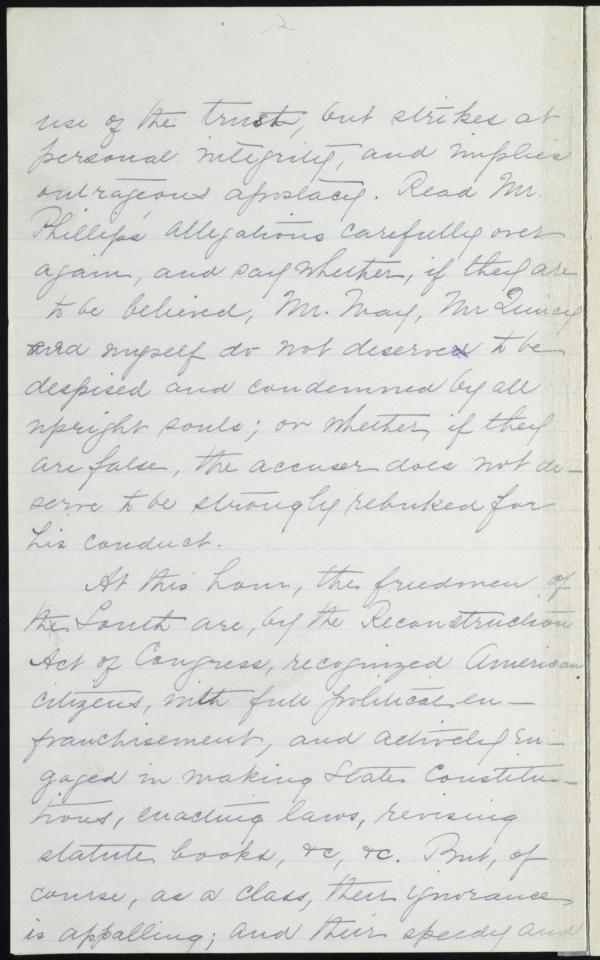 2
use of the trust, but strikes at
personal integrity, and implies
outrageous apostacy. Read Mr.
Phillips's allegations carefully over
again, and say whether, if they are
to be believed, Mr. May, Mr Quincy
and myself do not deserve to be
despised and condemned by all
upright souls; or whether, if they
are false, the accuser does not de-
serve to be strongly rebuked for
his conduct.
At this hour, the friedmen of
the South are, by the Reconstruction
Act of Congress, recognized American
citizens, with full political en-
franchisement, and actively en-
gaged in making State Constitu-
tions, enacting laws, revising
statute books, &c, &c. But, of
course, as a class, their ignorance
is appalling; and their speedy and